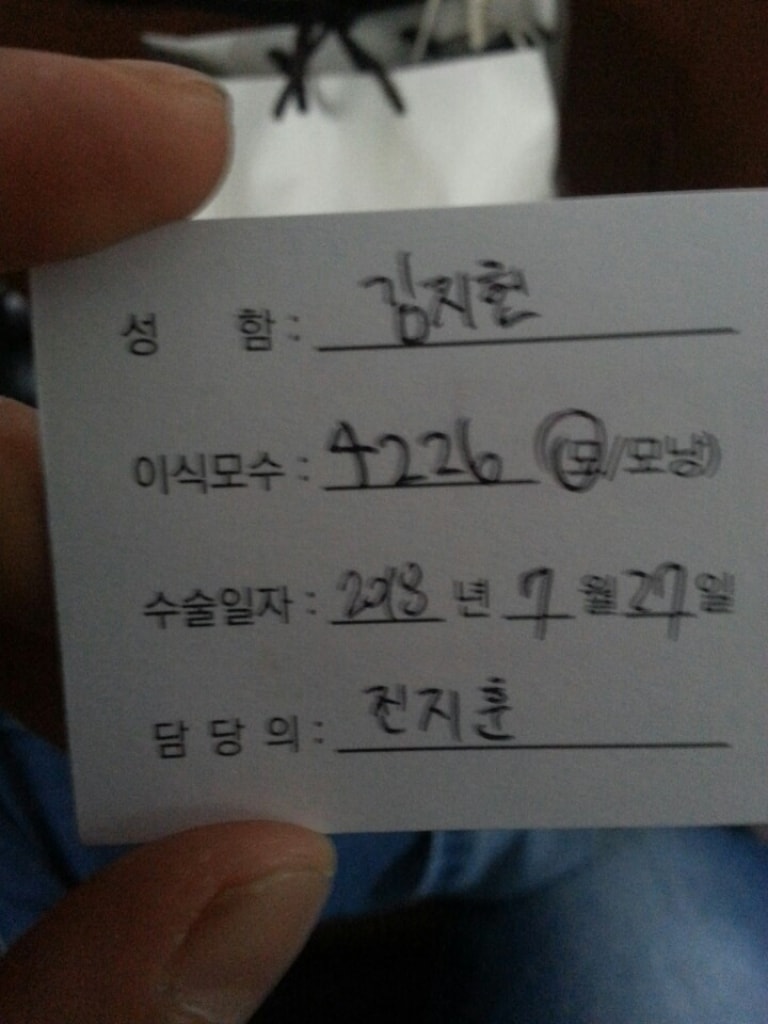 성 함 : 김지헌
이식모수 : 4226 (모/모낭)
수술일자 : 2018 년 7 월 27 일
담 당 의 : 진지훈